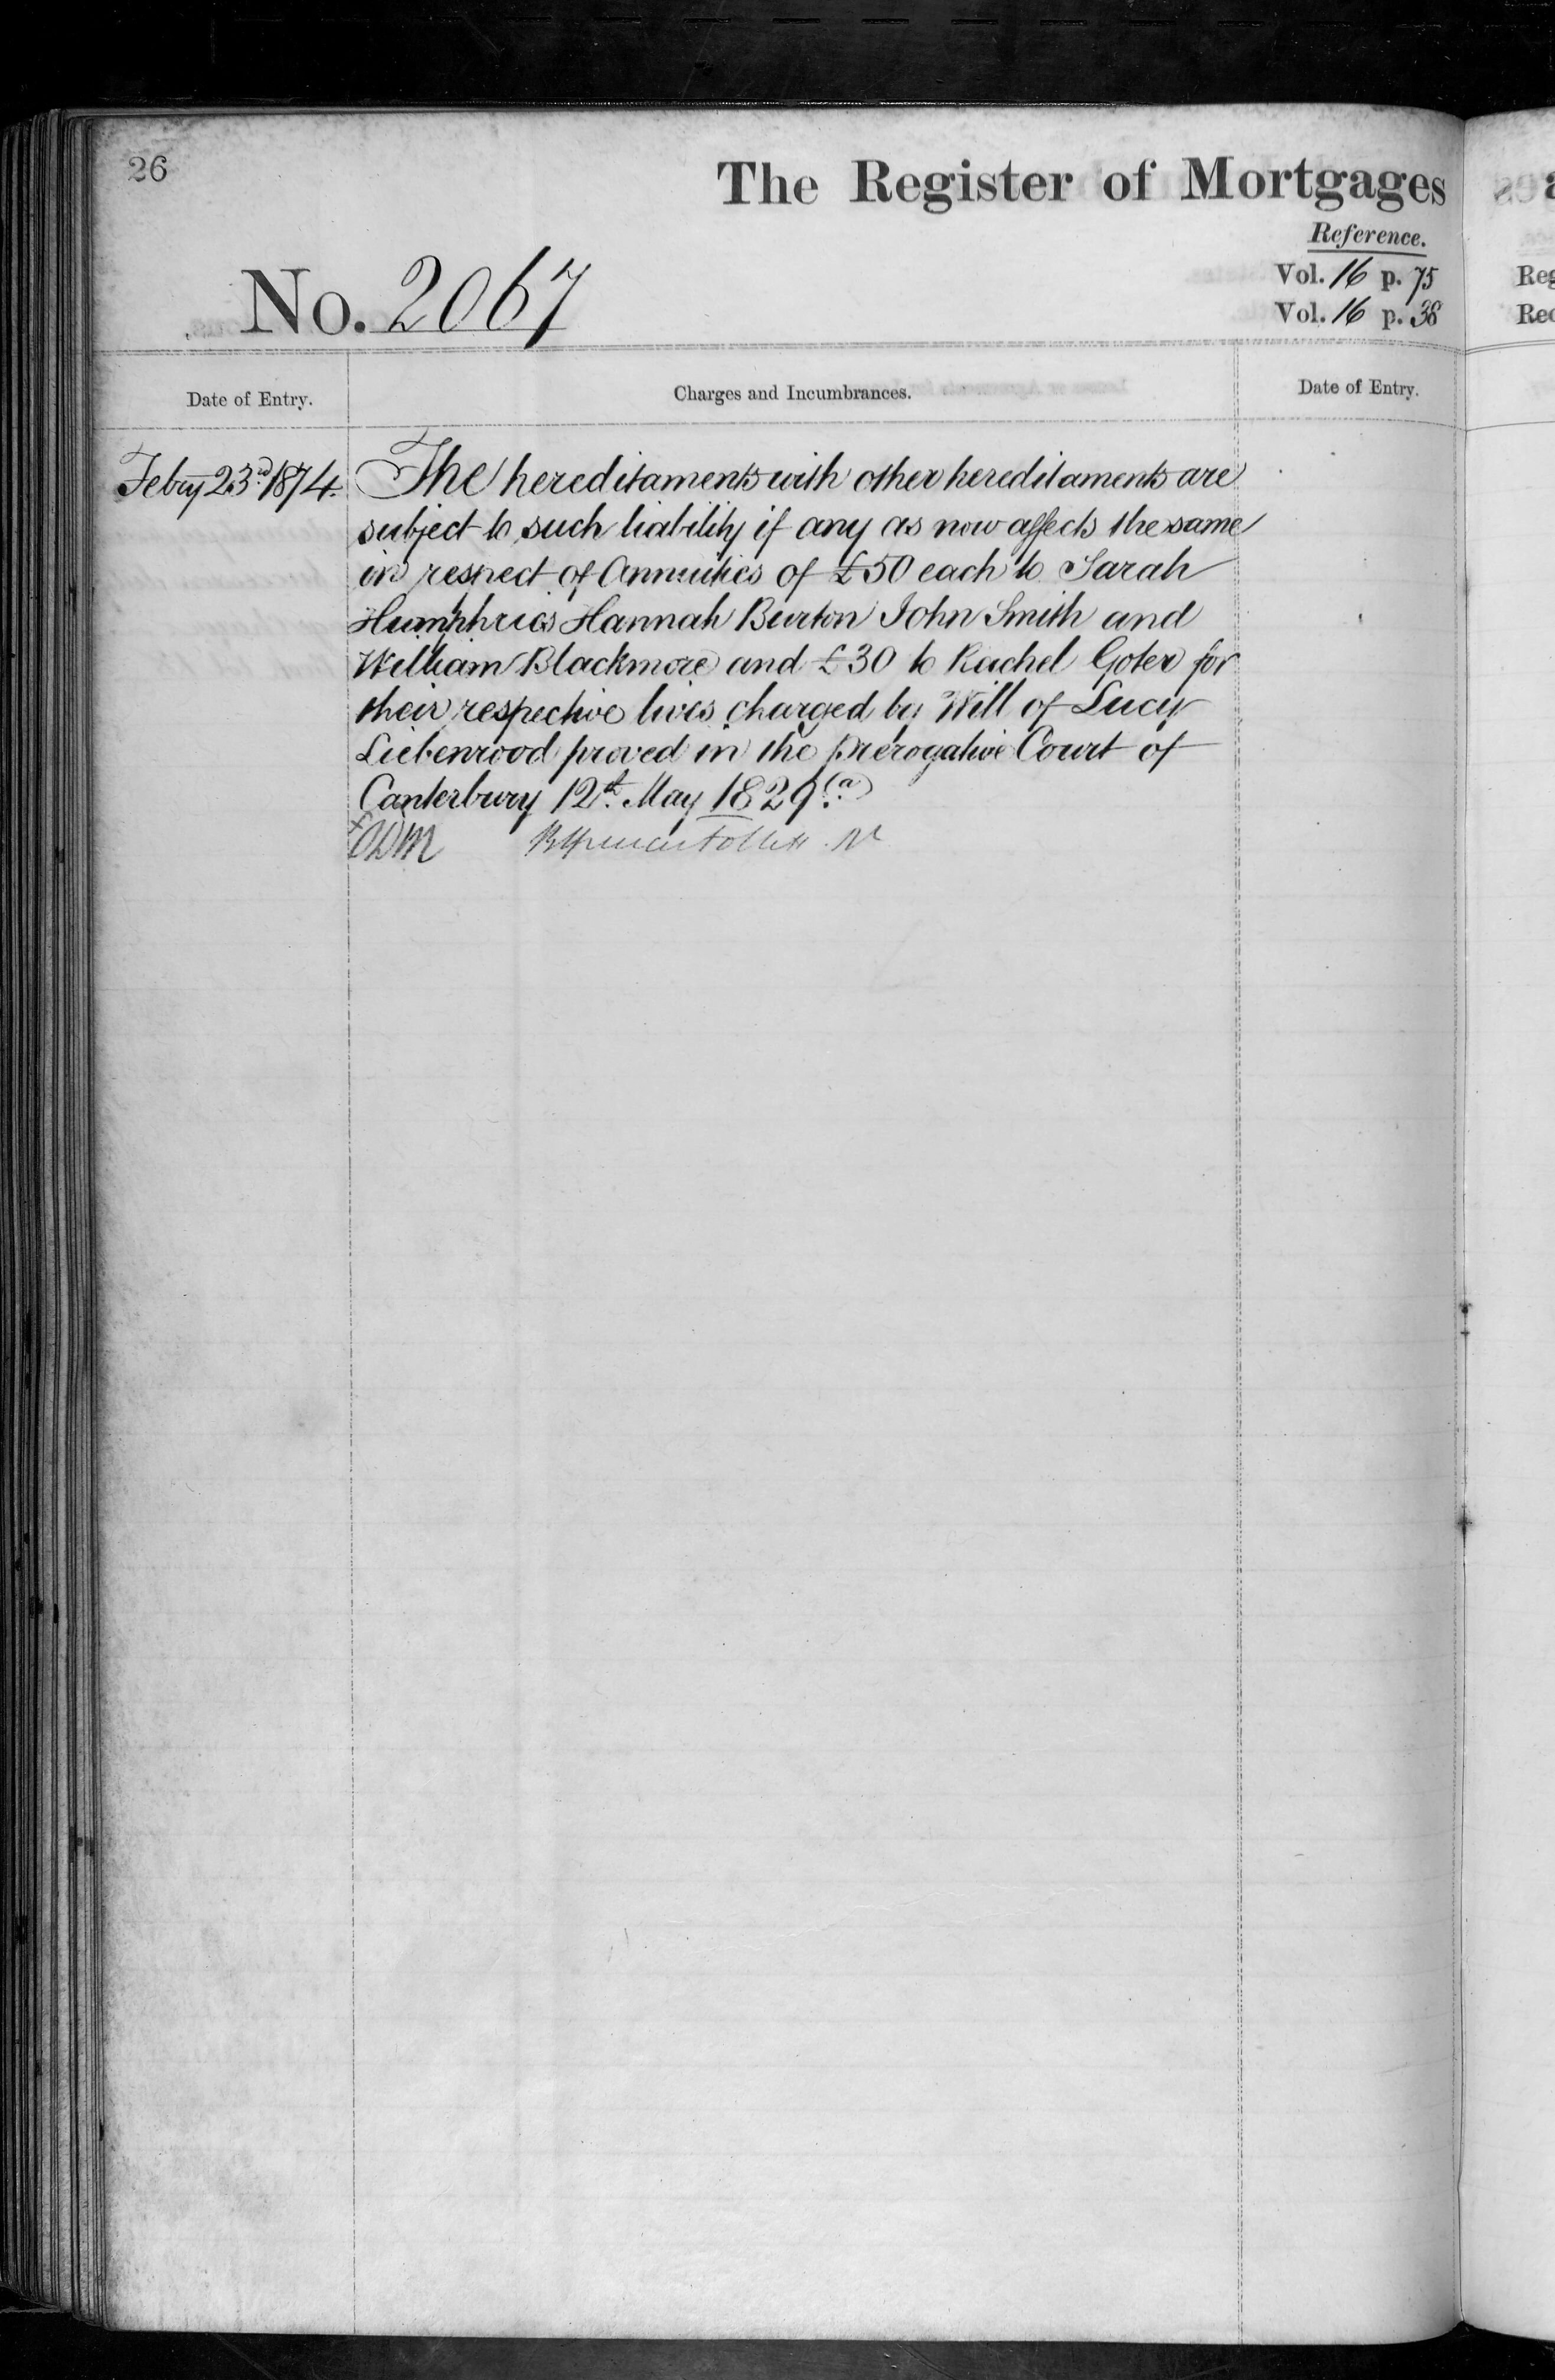 26
The Register of Mortgages
Reference.
No. 2067
Vol. 16 p. 75
Vol. 16 p. 38
Date of Entry.
Charges and Incumbrances.
Date of Entry.
Febry 23rd 1874. The hereditaments with other hereditaments are
subject to such liability if any as now affects the same
in respect of Annuities of £50 each to Sarah
Humphries Hannah Burton John Smith and
William Blackmore and £30 to Rachel Goter for
their respective lives charged by Will of Lucy
Liebenrood proved in the Prerogative Court of
Canterbury 12th May 1829 (a)
Reg
Rec